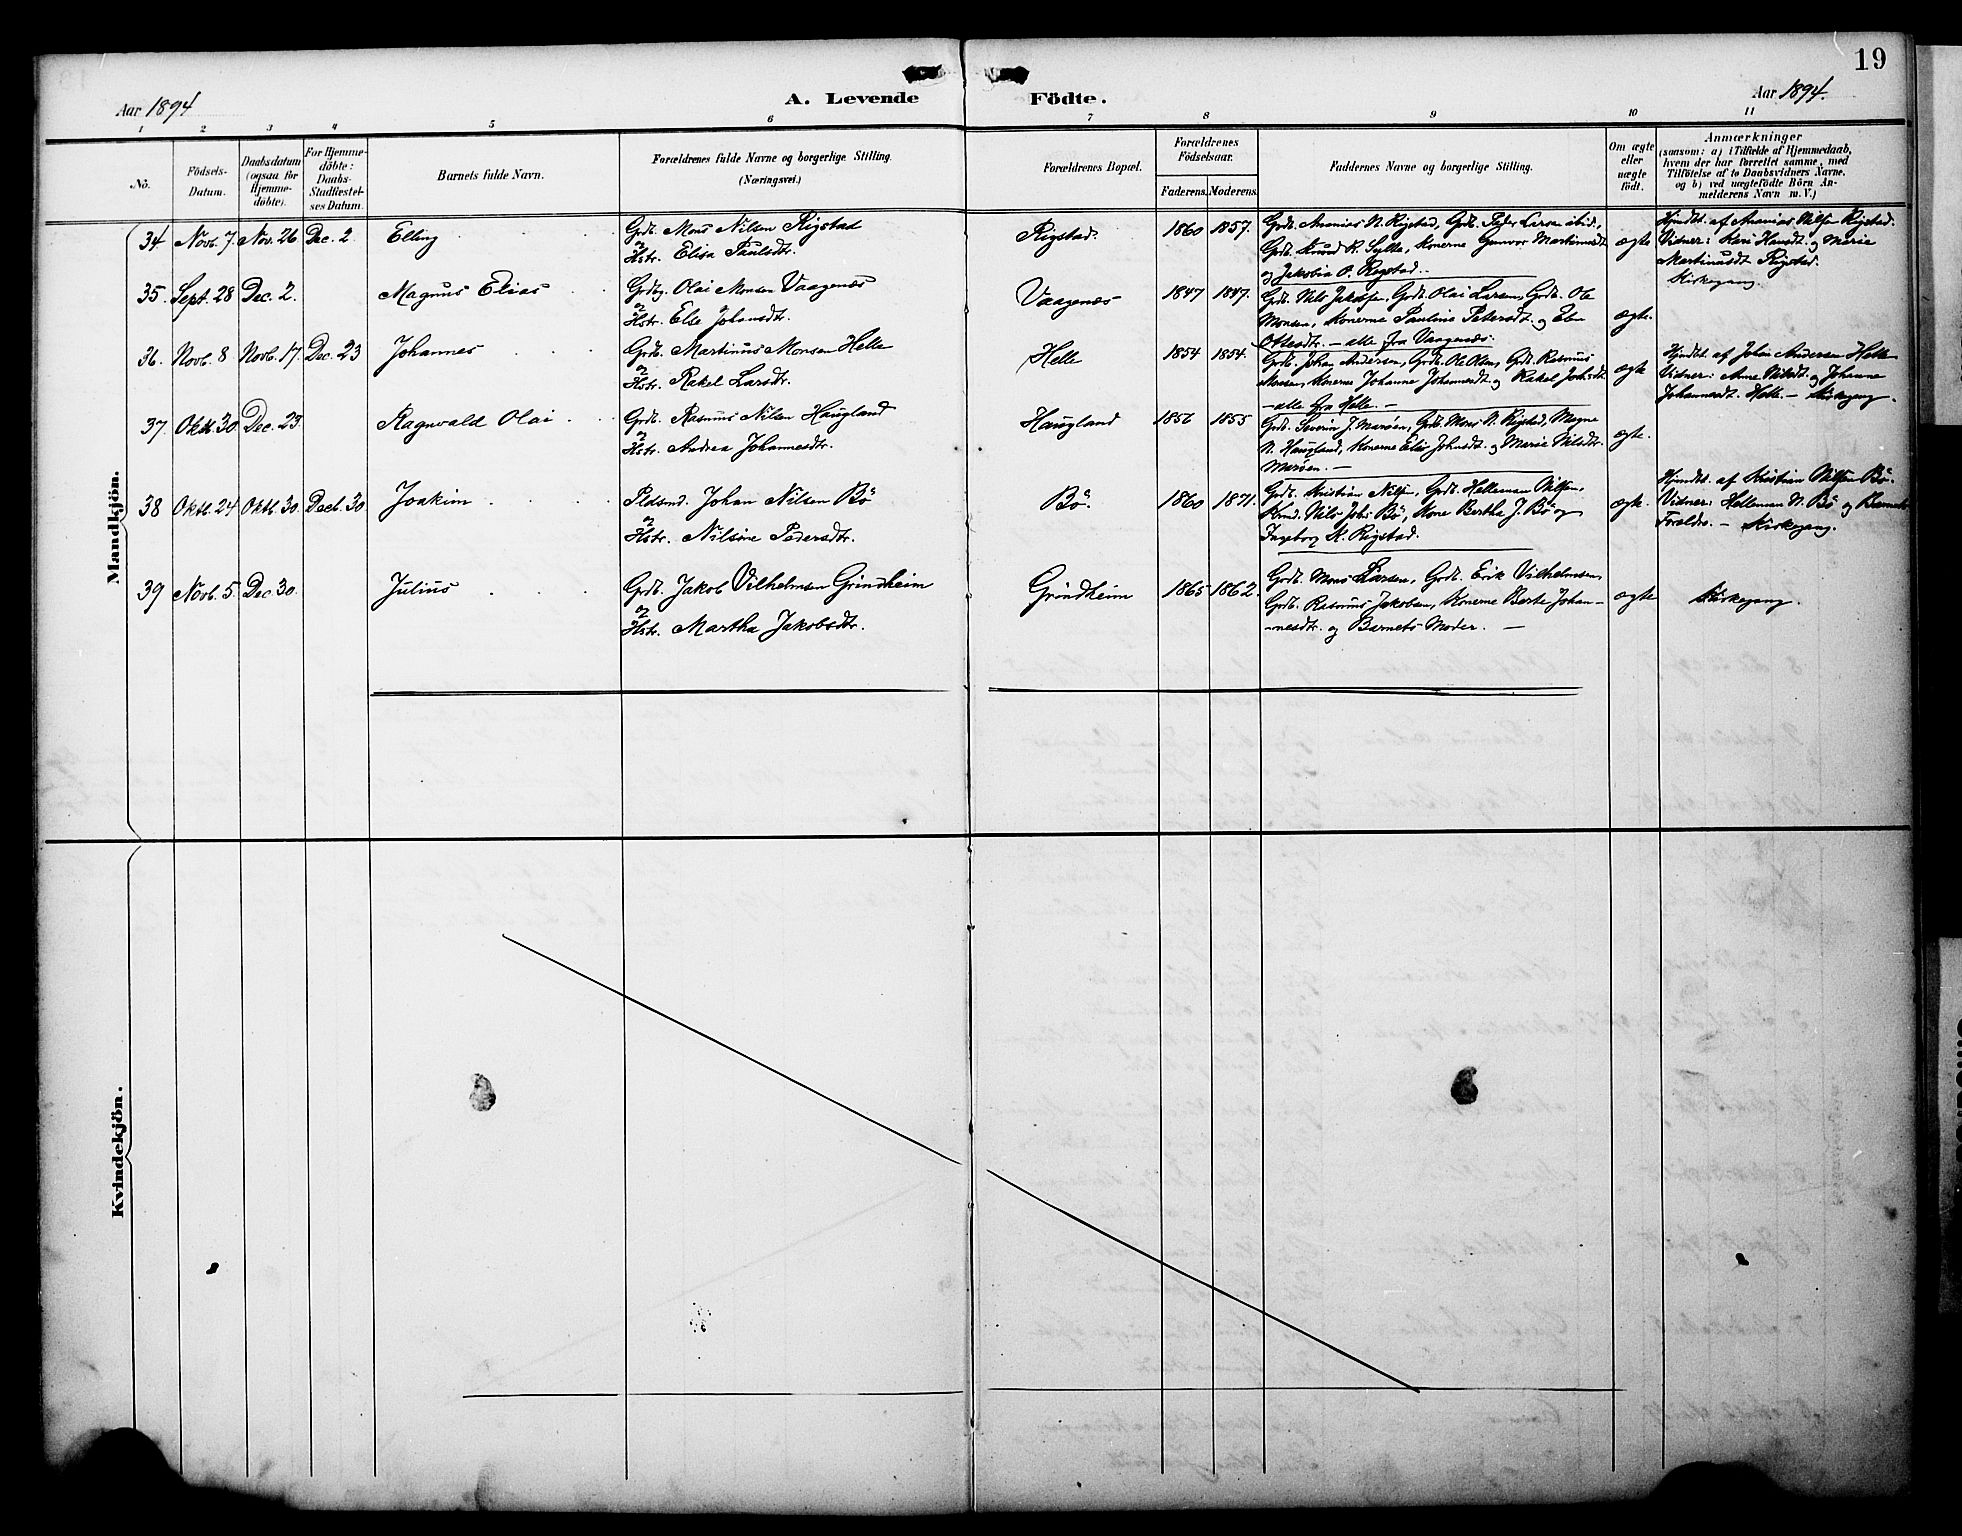 19
Aar 1894
A. Levende Födte.
Aar 1894.
1 2 3 4 5 6 7 8 9 10 11
No.
Födsels-
Datum.
Daabsdatum
(ogsaa for
Hjemme-
döbte).
For Hjemme-
döbte:
Daabs-
Stadfæstel-
ses Datum.
Barnets fulde Navn.
Forældrenes fulde Navne og borgerlige Stilling.
(Næringsvei.)
Forældrenes Bopæl.
Forældrenes
Födselsaar.
Faderens. Moderens.
Faddernes Navne og borgerlige Stilling.
Om ægte
eller
uægte
födt.
Anmærkninger
(saasom: a) i Tilfælde af Hjemmedaab,
hvem der har forrettet samme, med
Tilföielse af to Daabsvidners Navne,
og b) ved uægtefödte Börn An-
melderens Navn m. V.)
Mandkjön.
34 Novb. 7. Nov. 26 Dec. 2 Elling
Grdb. Mons Nilsen Rigstad
og
Hstr. Elisa Paulsdtr.
Rigstad. 1860 1857.
Grdb. Ananias N. Rigstad, Grdb. Peder Larsen ibid.,
Grdb. Knud K. Sylte, Konerne Gunvor Martinusdt
og Jakobia O. Rigstad.
ægte
Hjmdbt. af Ananias Nilsen Rigstad.
Vidner: Kari Hansdt. og Maria
Martinusdt Rigstad.
Kirkegang.
35. Sept. 28 Dec. 2. Magnus Elias
Grdbg. Olai Monsen Vaagenæs
og
Hstr. Else Johansdtr.
Vaagenæs 1847 1847.
Grdb. Nils Jakobsen, Grdb. Olai Larsen, Grdb. Ole
Monsen, Konerne Pauline Petersdt. og
Ottesdtr. — alle fra Vaagenæs.
ægte.
36. Novb. 8 Novb. 17. Dec. 23 Johannes
Grdb. Martinus Monsen Helle
og
Hstr. Rakel Larsdtr.
Helle 1854 1854.
Grdb. Johan Andersen, Grdb. Ole Olsen, Grdb. Rasmus
Monsen, Konerne Johanne Johannesdt. og Rakel Johsdt.
— alle fra Helle. —
ægte
Hjmdbt. af Johan Andersen Helle
Vidner: Anne Nilsdt. og Johanne
Johannesdt. Helle. — Kirkegang.
37. Oktb. 30. Dec. 23. Ragnvald Olai
Grdb. Rasmus Nilsen Haugland
og
Hstr. Andrea Johannesdtr.
Haugland 1856 1855
Grdb. Severin J. Marøen, Grdb. Mons N. Rigstad, Magne
N. Haugland, Konerne Elise Johnsdt. og Maria Nilsdtr.
Marøen. —
ægte.
38 Oktb. 24 Oktb. 30. Decb. 30 Joakim
Pldsmd. Johan Nilsen Bö
og
Hstr. Nilsine Pedersdtr.
Bö. 1860 1871.
Grdb. Kristian Nilsen, Grdb. Helleman Nilsen,
Nils Johs. Bö, Kone Bertha J. Bö og
Ingeborg K. Rigstad.
ægte.
Hjmdbt. af Kristian Nilsen Bö.
Vidner: Helleman N. Bö og Barnets
Forældre. — Kirkegang.
39 Novb. 5. Dec. 30. Julius
Grdb. Jakob Vilhelmsen Grindheim
og
Hstr. Martha Jakobsdtr.
Gröndheim 1865 1862.
Grdb. Mons Larsen, Grdb. Erik Vilhelmsen,
Grdb. Rasmus Jakobsen, Konerne Berte Johan-
-nesdtr. og Barnets Moder. —
ægte
Kirkegang.
Kvindekjön.